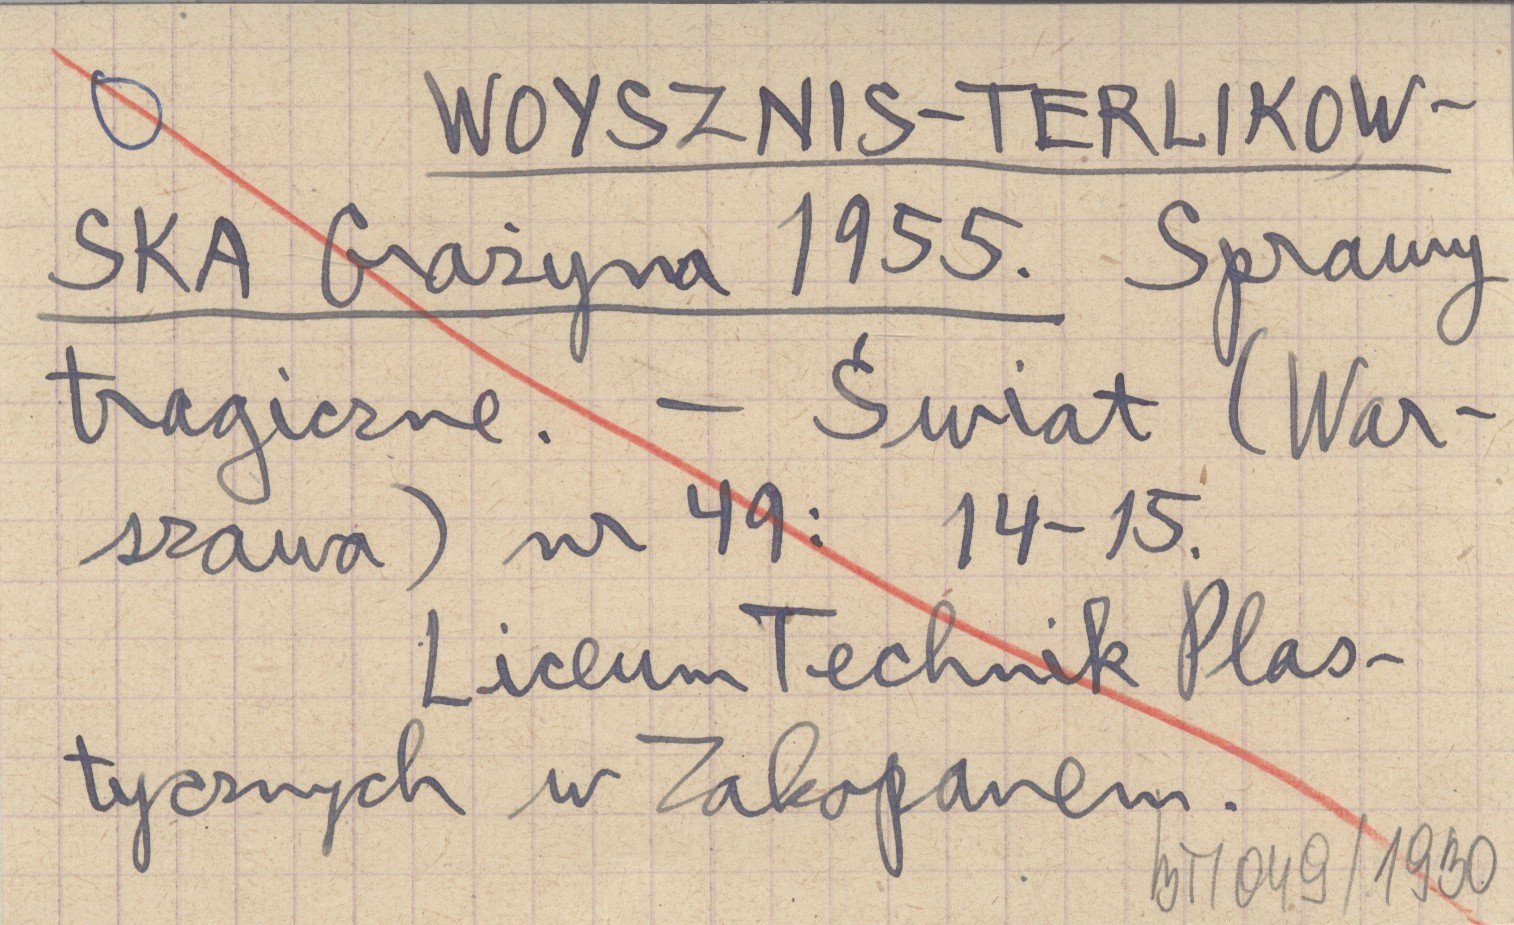 WOYSZNIS-TERLIKOW-
SKA Grażyna 1955. Sprawy
tragiczne. – Świat (War-
szawa) nr 49: 14-15.
Liceum Technik Plas-
tycznych w Zakopanem.
BT/049/1930